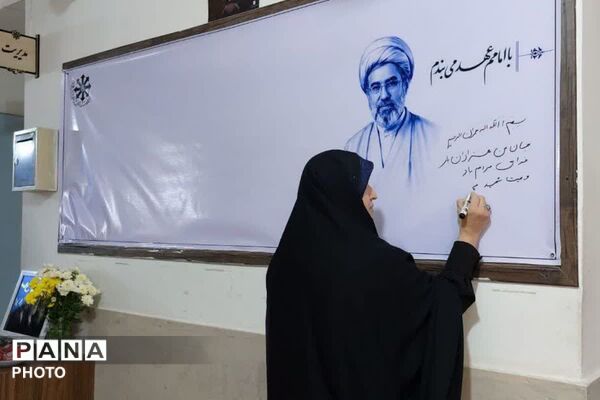 مدیریت
با امامم عهد می بندم
بسم الله الرحمن الرحیم
جان من هزاران بار
فدای مرام باد
PANA
PHOTO